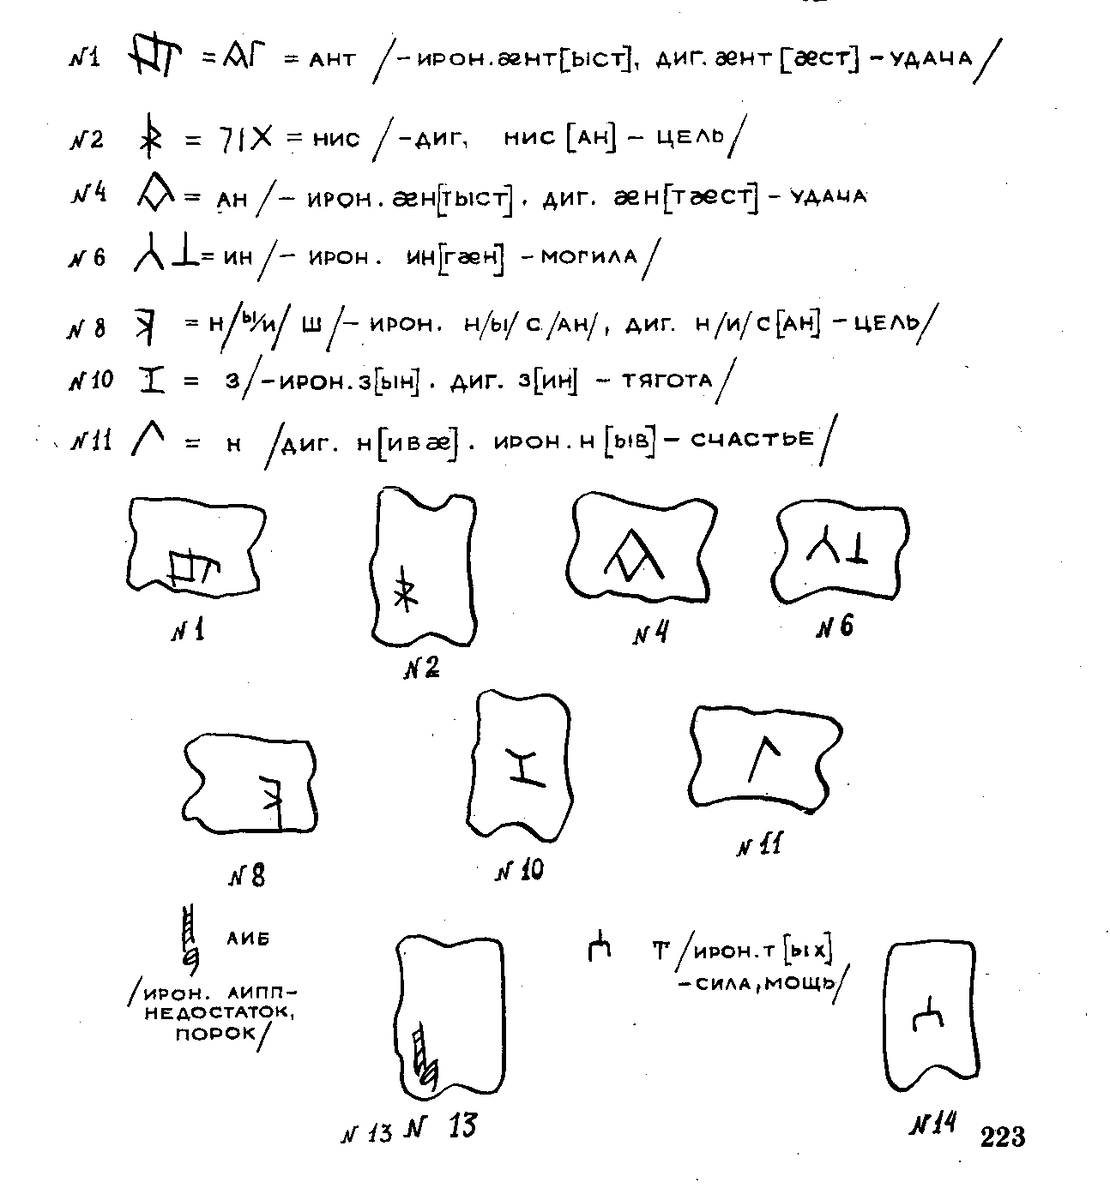 N1 = АГ = АНТ /-ИРОН. æНТ[ЫСТ], ДИГ. æНТ [æСТ] - УДАЧА/
N2 = 71X = НИС /-ДИГ, НИС [АН] - ЦЕЛЬ/
N4 = АН /- ИРОН. æН[ТЫСТ]. ДИГ. æН[ТæСТ] - УДАЧА
N6 = ИН /- ИРОН. ИН[Гæн] - МОГИЛА/
N8 = Н/Ы/И/ Ш /- ИРОН. Н/Ы/ С /АН/, ДИГ. Н/И/С[АН] - ЦЕЛЬ/
N10 = З/-ИРОН. З[ЫН]. ДИГ. З[ИН] - ТЯГОТА/
N11 = Н /ДИГ. Н[ИВæ]. ИРОН. Н [ЫВ] - СЧАСТЬЕ/
N1
N2
N4
N6
N8
N10
N11
АИБ
/ИРОН. АИПП-
НЕДОСТАТОК,
ПОРОК/
Т /ИРОН. Т [ЫХ]
-СИЛА, МОЩЬ/
N 13 N 13
N14
223